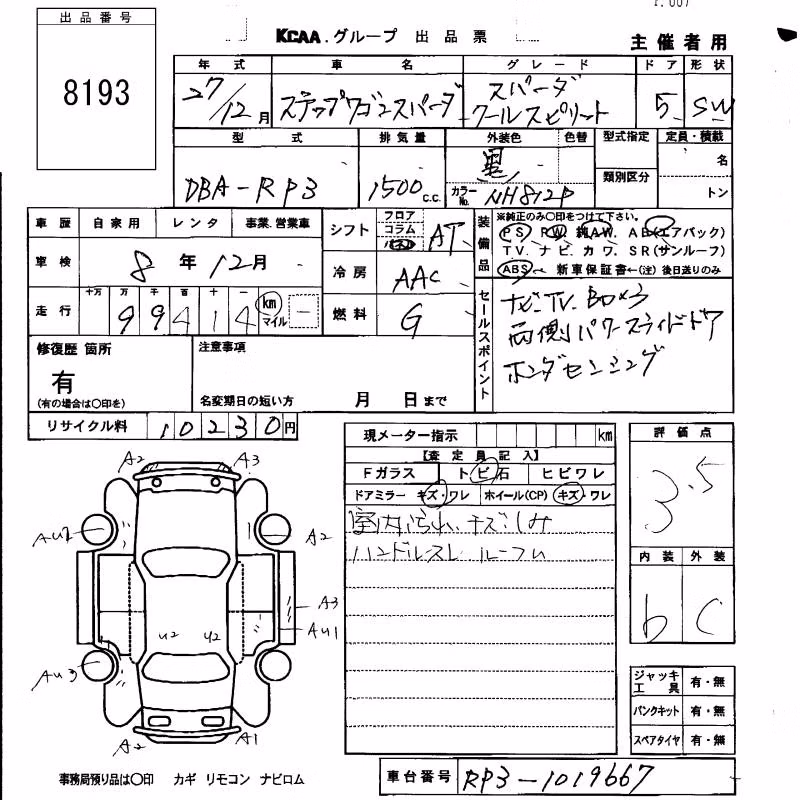 出品番号
8193
KCAA.グループ 出品票
主催者用
年式 車名 グレード ドア 形状
27/12月 ステップワゴンスパーダ スパーダ クールスピリット 5 SW
型式 排気量 外装色 色替 型式指定 定員・積載
類別区分
名
トン
DBA-RP3 1500 c.c. 黒 カラーNo. NH812P
車歴 自家用 レンタ 事業.営業車
車検 8年12月
走行 十万 万 千 百 十 一
99414 km マイル
シフト フロア コラム AT
冷房 AAC
燃料 G
装備品
※純正のみ○印をつけて下さい。
PS. PW. 純AW. AB(エアバック)
TV. ナビ. カワ. SR(サンルーフ)
ABS 新車保証書←(注) 後日送りのみ
セールスポイント
ナビ.TV.
両側パワースライドドア
ホンダセンシング
修復歴 箇所
有
(有の場合は○印を)
注意事項
名変期日の短い方 月 日まで
リサイクル料 10230円
現メーター指示 km
【査定員記入】
Fガラス トビ石 ヒビワレ
ドアミラー キズ・ワレ ホイール(CP) キズ・ワレ
室内汚れ、キズ しみ
ハンドルスレ
評価点
3.5
内装 外装
b C
A2 A3
AU2 A2
A3
U2 U2 AU1
AU3
A2 A1
ジャッキ工具 有・無
パンクキット 有・無
スペアタイヤ 有・無
事務局預り品は○印 カギ リモコン ナビロム
車台番号 RP3-1019667